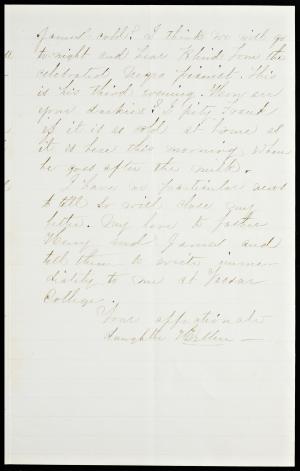 James cold? I think we will go
to night and hear Blind Tom the
celebrated Negro pianist. This
is his third evening. How are
your darkies? I pity Frank
if it is as cold at home as
it is here this morning, when
he goes after the milk.
I have no particular news
to tell so will close my
letter. My love to father
Henry and James and
tell them to write imme-
diately to me at Vassar
College.
Your affectionate
daughter